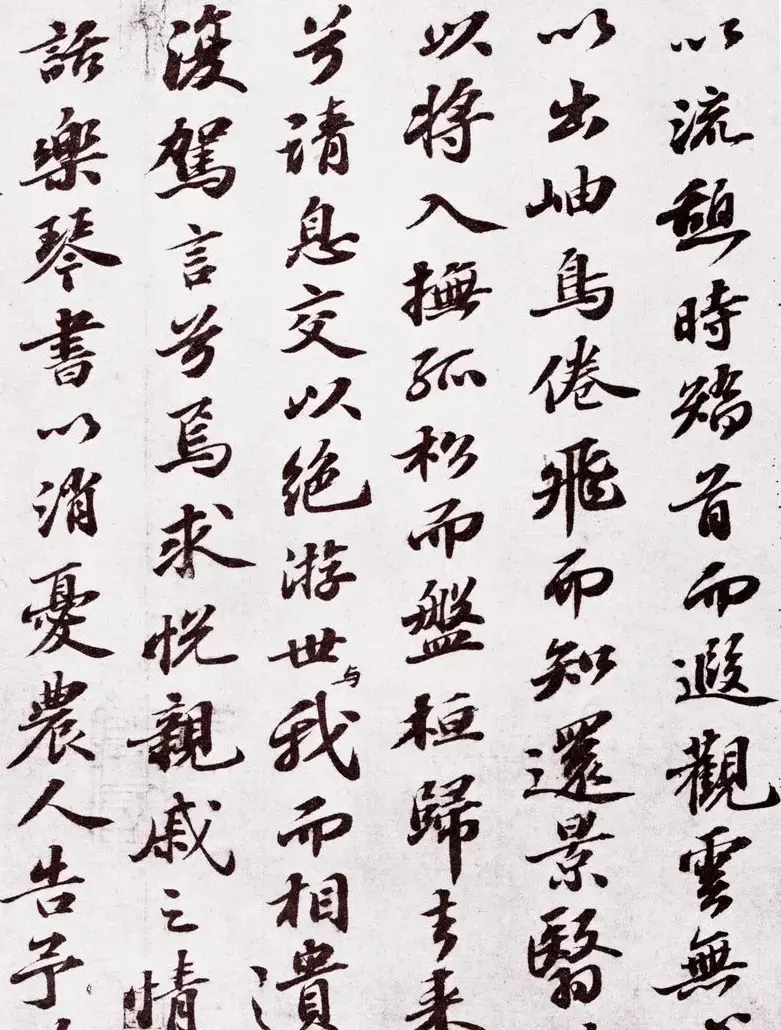 以流憩時矯首而遐觀雲無
以出岫鳥倦飛而知還景翳
以將入撫孤松而盤桓歸去来
兮請息交以絶游世与我而相遺
復駕言兮焉求悦親戚之情
話樂琴書以消憂農人告予